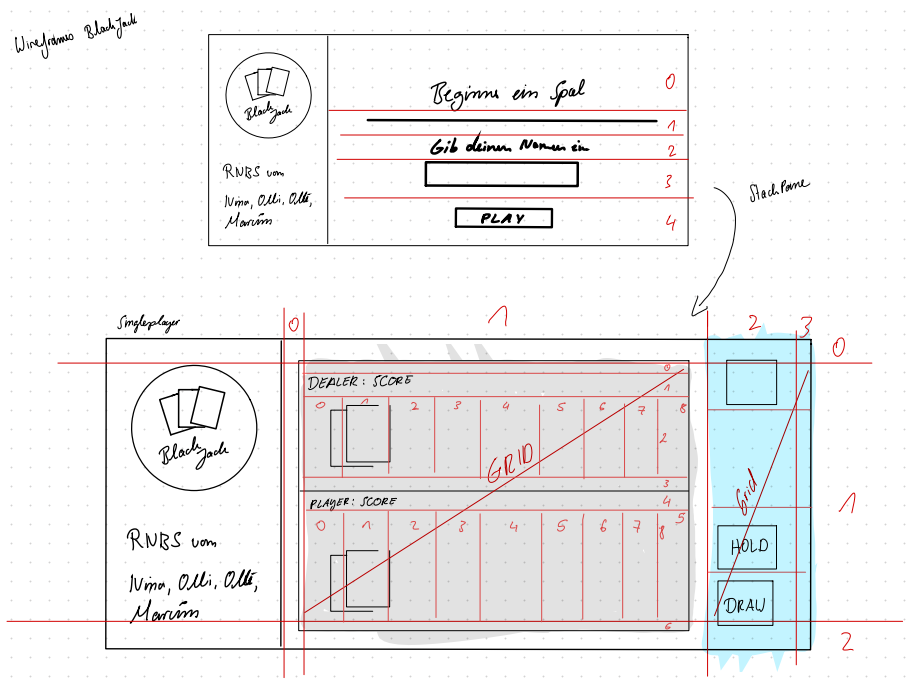 Wireframes BlackJack
Black Jack
RNBS von
Nina, Olli, Olli,
Marvin
Beginne ein Spiel
Gib deinen Namen ein
PLAY
0
1
2
3
4
StackPane
Singleplayer
0 1 2 3
0
1
2
Black Jack
RNBS von
Nina, Olli, Olli,
Marvin
DEALER: SCORE
0
1
0 1 2 3 4 5 6 7 8
2
GRID
3
PLAYER: SCORE
4
0 1 2 3 4 5 6 7 8
5
6
Grid
HOLD
DRAW